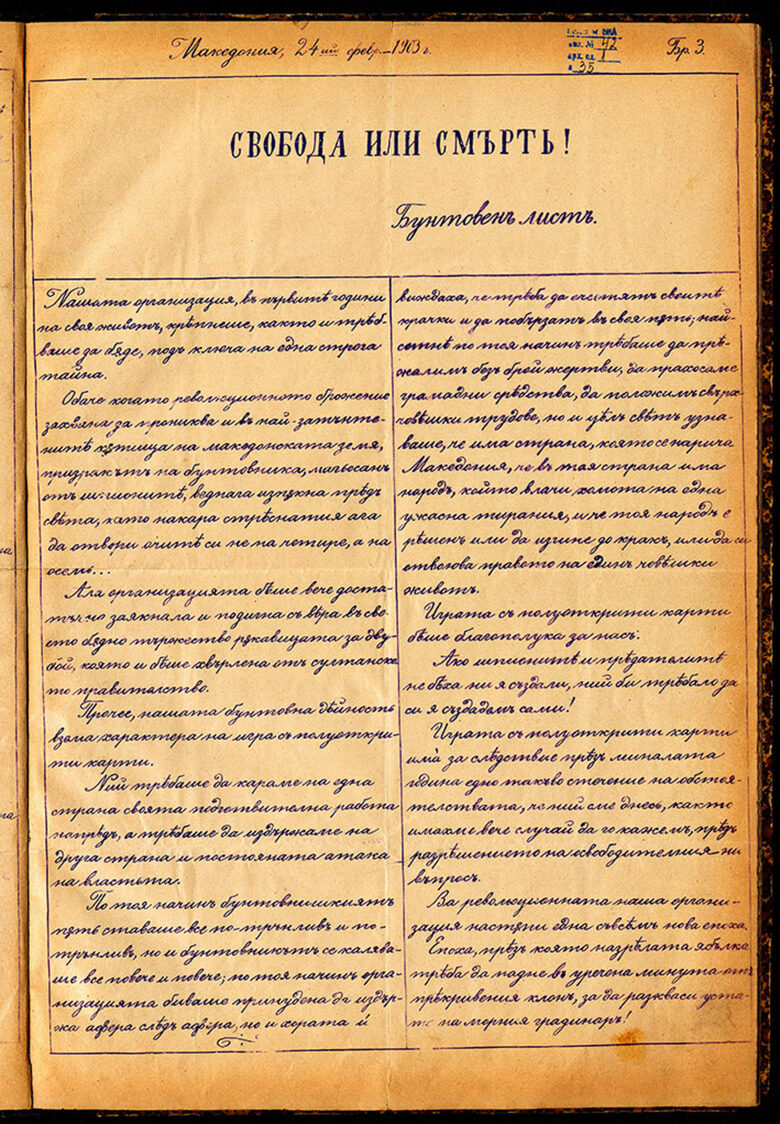 Македония, 24ий февр. 1903 г.
Бр. 3.
СВОБОДА ИЛИ СМЪРТЬ!
Бунтовенъ листъ.
Нашата организация, въ първитѣ години
на своя животъ, крѣпнеше, както и трѣб-
ваше да бѫде, подъ ключа на една строга
тайна.
Обаче когато революционното брожение
захвана да прониква и въ най-затънте-
нитѣ кѫтища на македонската земя,
призракътъ на бунтовника, магьосанъ
отъ шпионитѣ, веднага изпъкна прѣдъ
свѣта, като накара стрѣснатия ага
да отвори очитѣ си не на четире, а на
осемь...
Ала организацията бѣше вече доста-
тъчно заякнала и подигна съ вѣра въ сво-
ето бѫдно тържество рѫкавицата за дву-
бой, която и бѣше хвърлена отъ султанско-
то правителство.
Прочее, нашата бунтовна дѣйность
взема характера на игра съ полуоткри-
ти карти.
Ний трѣбаше да караме на една
страна своята подготвителна работа
напрѣдъ, а трѣбаше да издържаме на
друга страна и постояната атака
на властьта.
По тоя начинъ бунтовнишкиятъ
пѫть ставаше все по-трънливъ и по-
трънливъ, но и бунтовникътъ се калява-
ше все повече и повече; по тоя начинъ орга-
низацията биваше принудена да издър-
жа афера слѣдъ афера, но и хората ѝ
виждаха, че трѣба да очистятъ своитѣ
крачки и да побързатъ въ своя пѫть; най-
сетнѣ по тоя начинъ трѣбаше да прѣ-
жалимъ безъ брой жертви, да прахосаме
грамадни срѣдства, да положимъ свърх-
човѣшки трудове, но и цѣлъ свѣтъ узна-
ваше, че има страна, която се нарича
Македония, че въ тая страна има
народъ, който влачи хомота на една
ужасна тирания, и че тоя народъ е
рѣшенъ или да изгине до кракъ, или да си
отвоюва правото на единъ човѣшки
животъ.
Играта съ полуоткрити карти
бѣше благополука за насъ.
Ако шпионитѣ и прѣдателитѣ
не бѣха ни я създали, ний би трѣбало да
си я създадемъ сами!
Играта съ полуоткрити карти
има за слѣдствие прѣзъ миналата
година едно такъво стечение на обстоя-
телствата, че ний сме днесь, както
имахме вече случай да го кажемъ, прѣдъ
разрѣшението на освободителния ни
въпросъ.
За революционната наша органи-
зация настѫпи една съвсѣмъ нова епоха.
Епоха, прѣзъ която назрѣлата ябълка
трѣба да падне въ уречена минута отъ
прѣкривения клонъ, за да разкваси уста-
та на морния градинаръ!